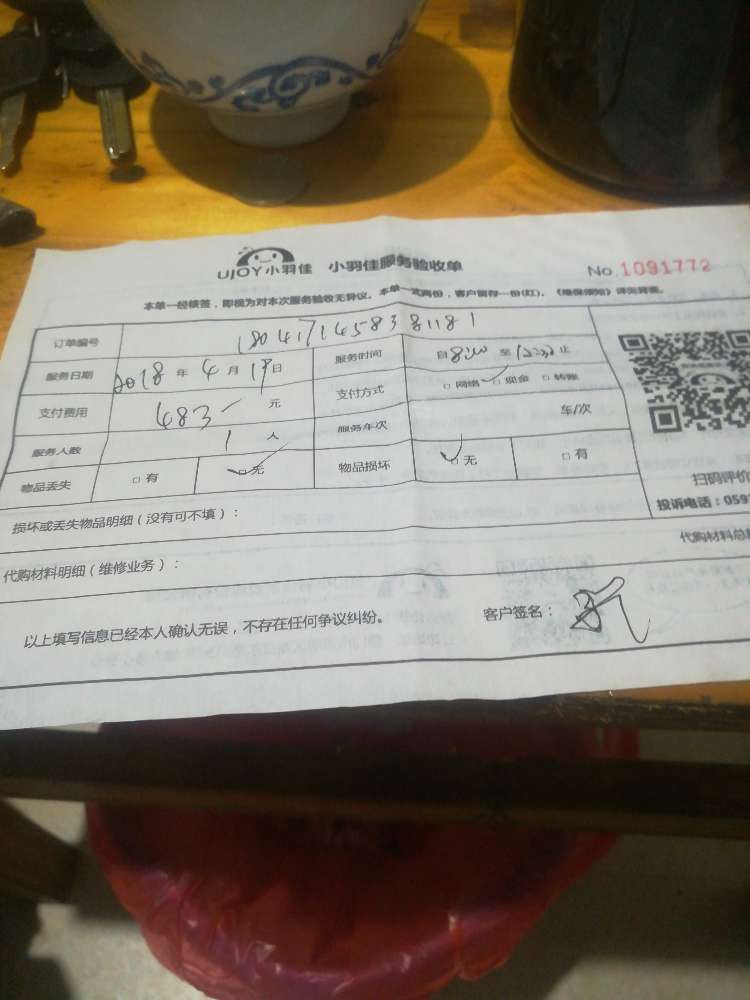 UJOY小羽佳 小羽佳服务验收单 No.1091772
本单一经核签，即视为对本次服务验收无异议。本单一式两份，客户留存一份(红)。《维保须知》详见背面。
订单编号 1804171458381181
服务日期 2018 年 4 月 19 日 服务时间 自 8:00 至 12:00 止
支付费用 483 元 支付方式 □网络 □现金 □转账
服务人数 1 人 服务车次 车/次
物品丢失 □有 □无 物品损坏 □无 □有
扫码评价
投诉电话：059
损坏或丢失物品明细（没有可不填）：
代购材料明细（维修业务）： 代购材料总
以上填写信息已经本人确认无误，不存在任何争议纠纷。 客户签名：